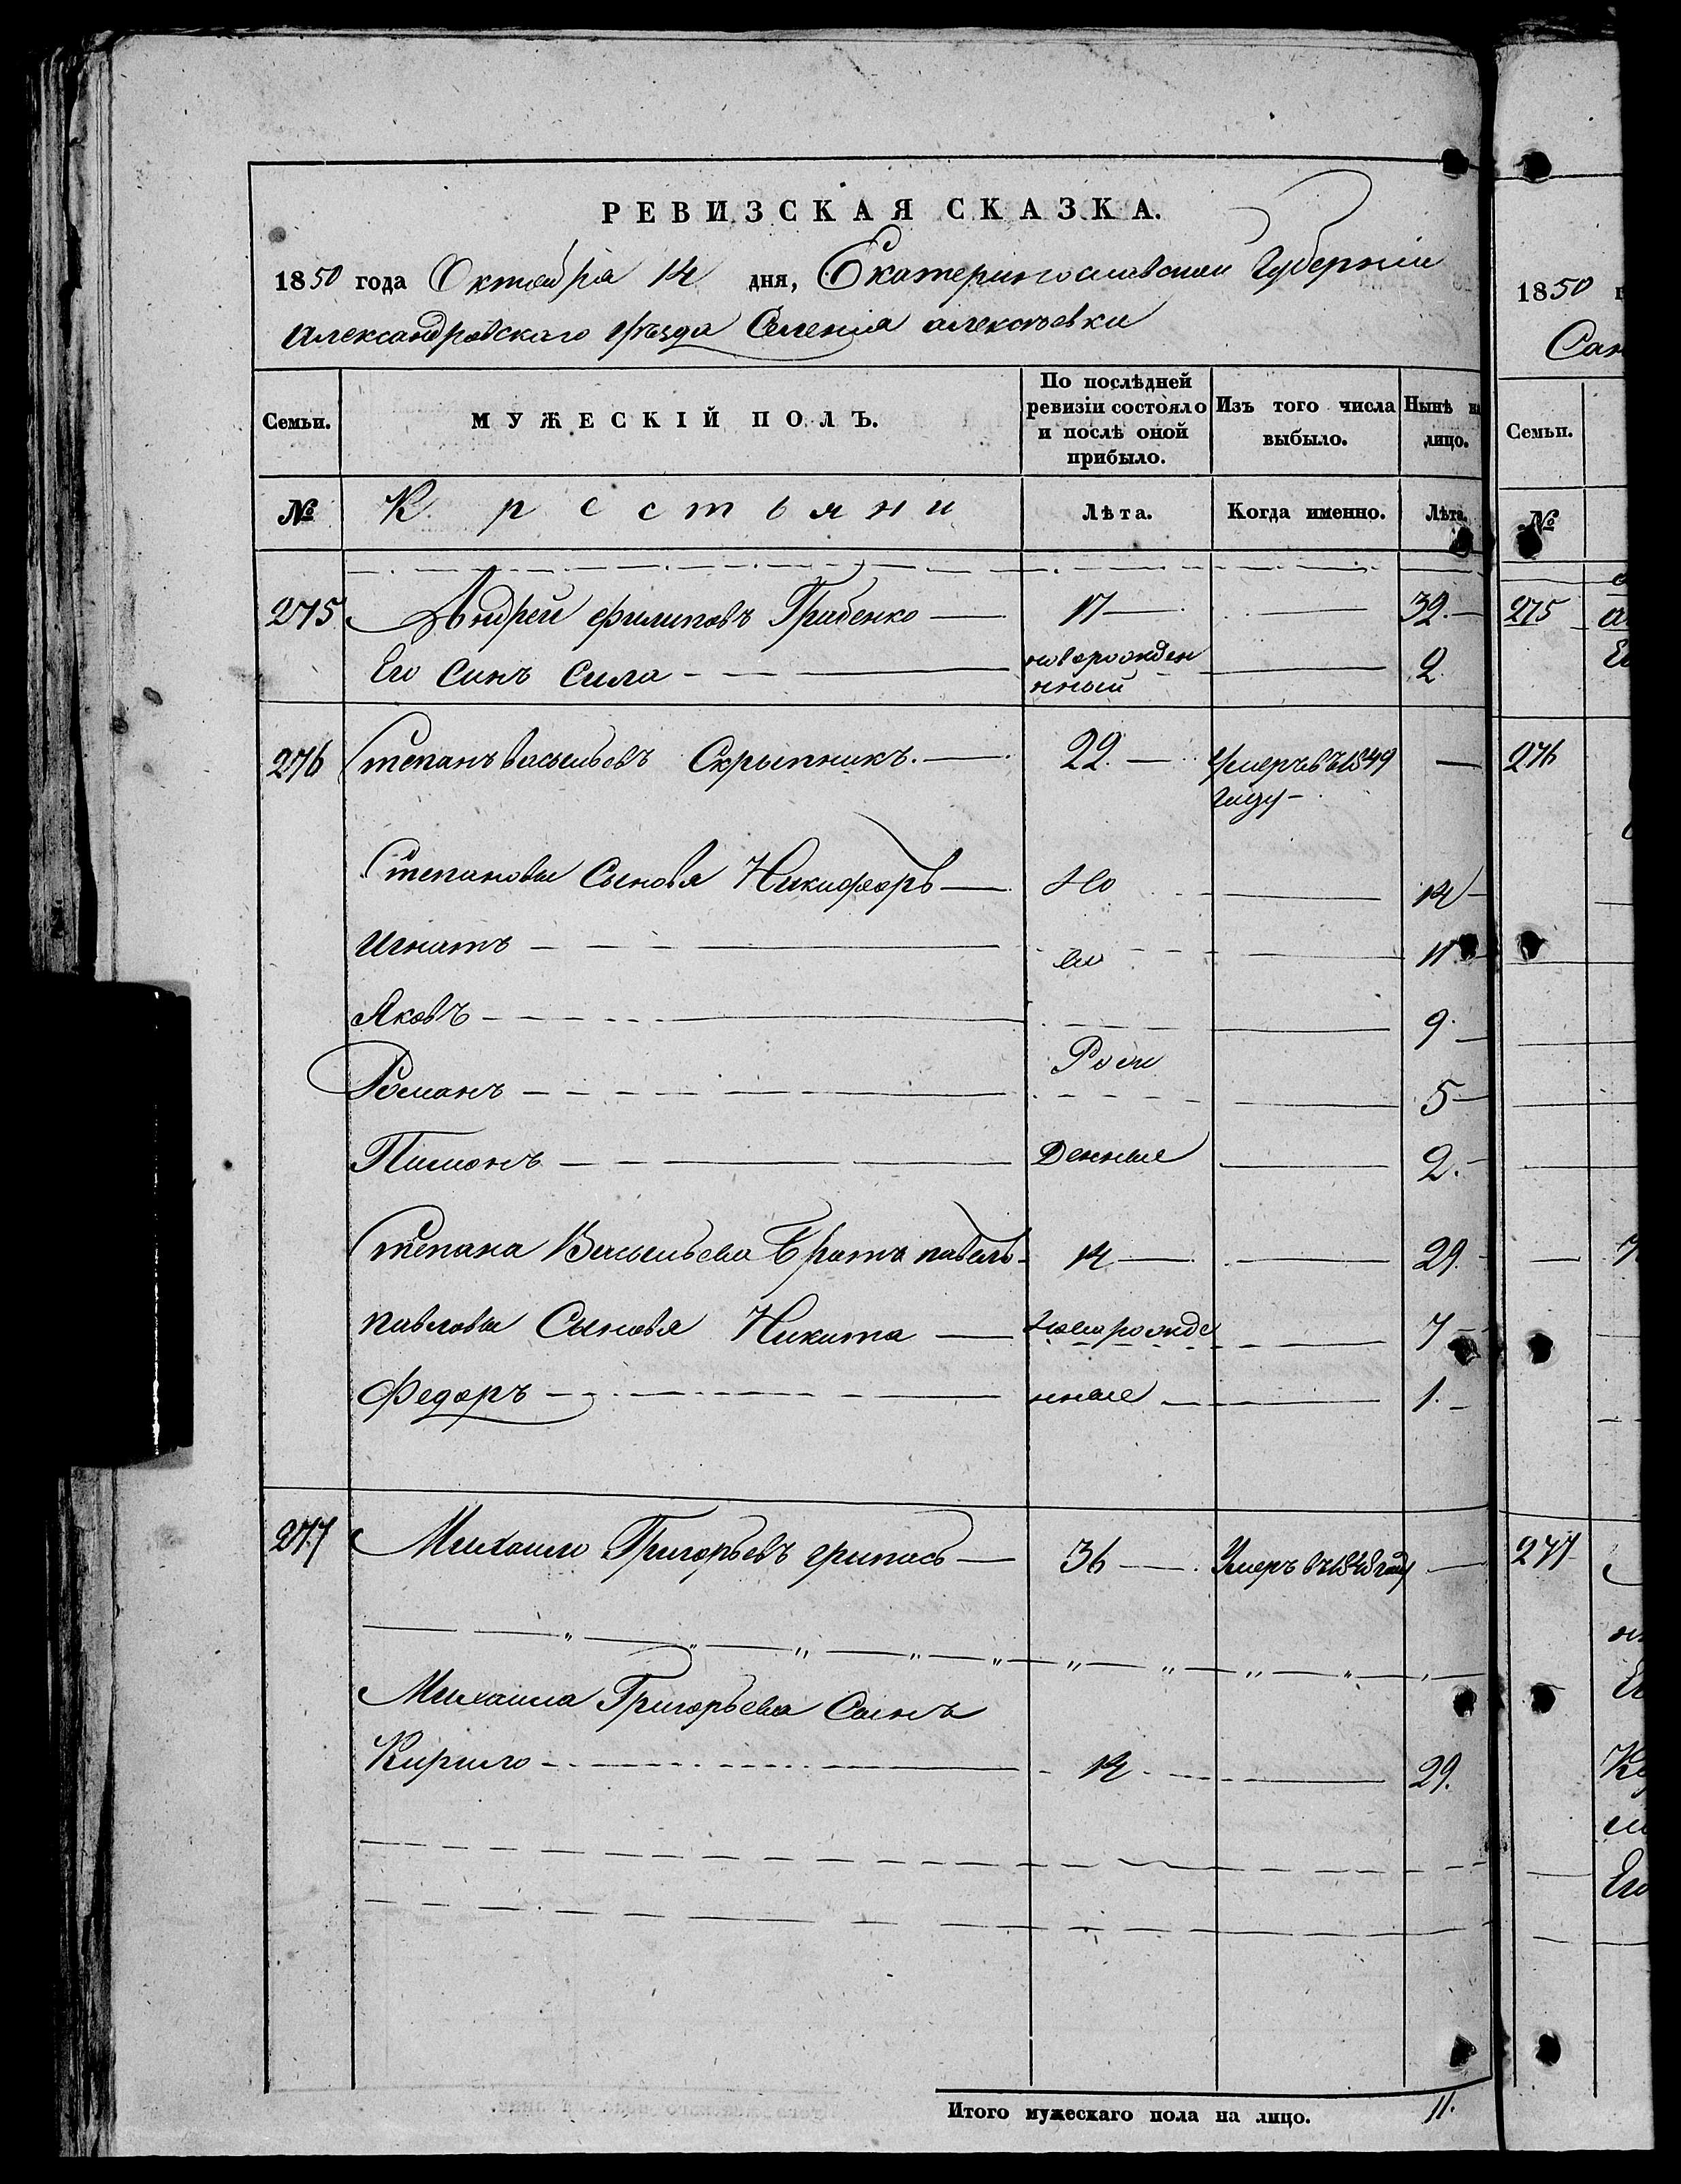 РЕВИЗСКАЯ СКАЗКА.
1850 года Октября 14 дня, Екатеринославской Губерніи
Александровскаго уѣзда Селенія алексѣевки
Семьи. МУЖЕСКІЙ ПОЛЪ. По послѣдней ревизіи состояло и послѣ оной прибыло. Изъ того числа выбыло. Нынѣ на лицо.
№ Крестьяни Лѣта. Когда именно. Лѣта.
275 Андрей филиповъ Грабенко 17 32.
Его Синъ Сила новорожден 2
нный
276 Степанъ васильевъ Скрыпникъ. 22. Умеръ въ 1849
году
Степановы Сыновя Никифоръ Но 14
Игнатъ во 11
Яковъ 9.
Рож
Романъ 5
Пимонъ Денные 2.
Степана Васильева Братъ павелъ 14 29.
павловы Сыновя Никита новорожде 7
Федоръ нные 1.
277 Михаило Григорьевъ грипась 36 Умеръ въ 1848 году
Михаила Григорьева Сынъ
Кирило 14 29.
Итого мужескаго пола на лицо. 11.
1850
Семьи.
№
275
276
277